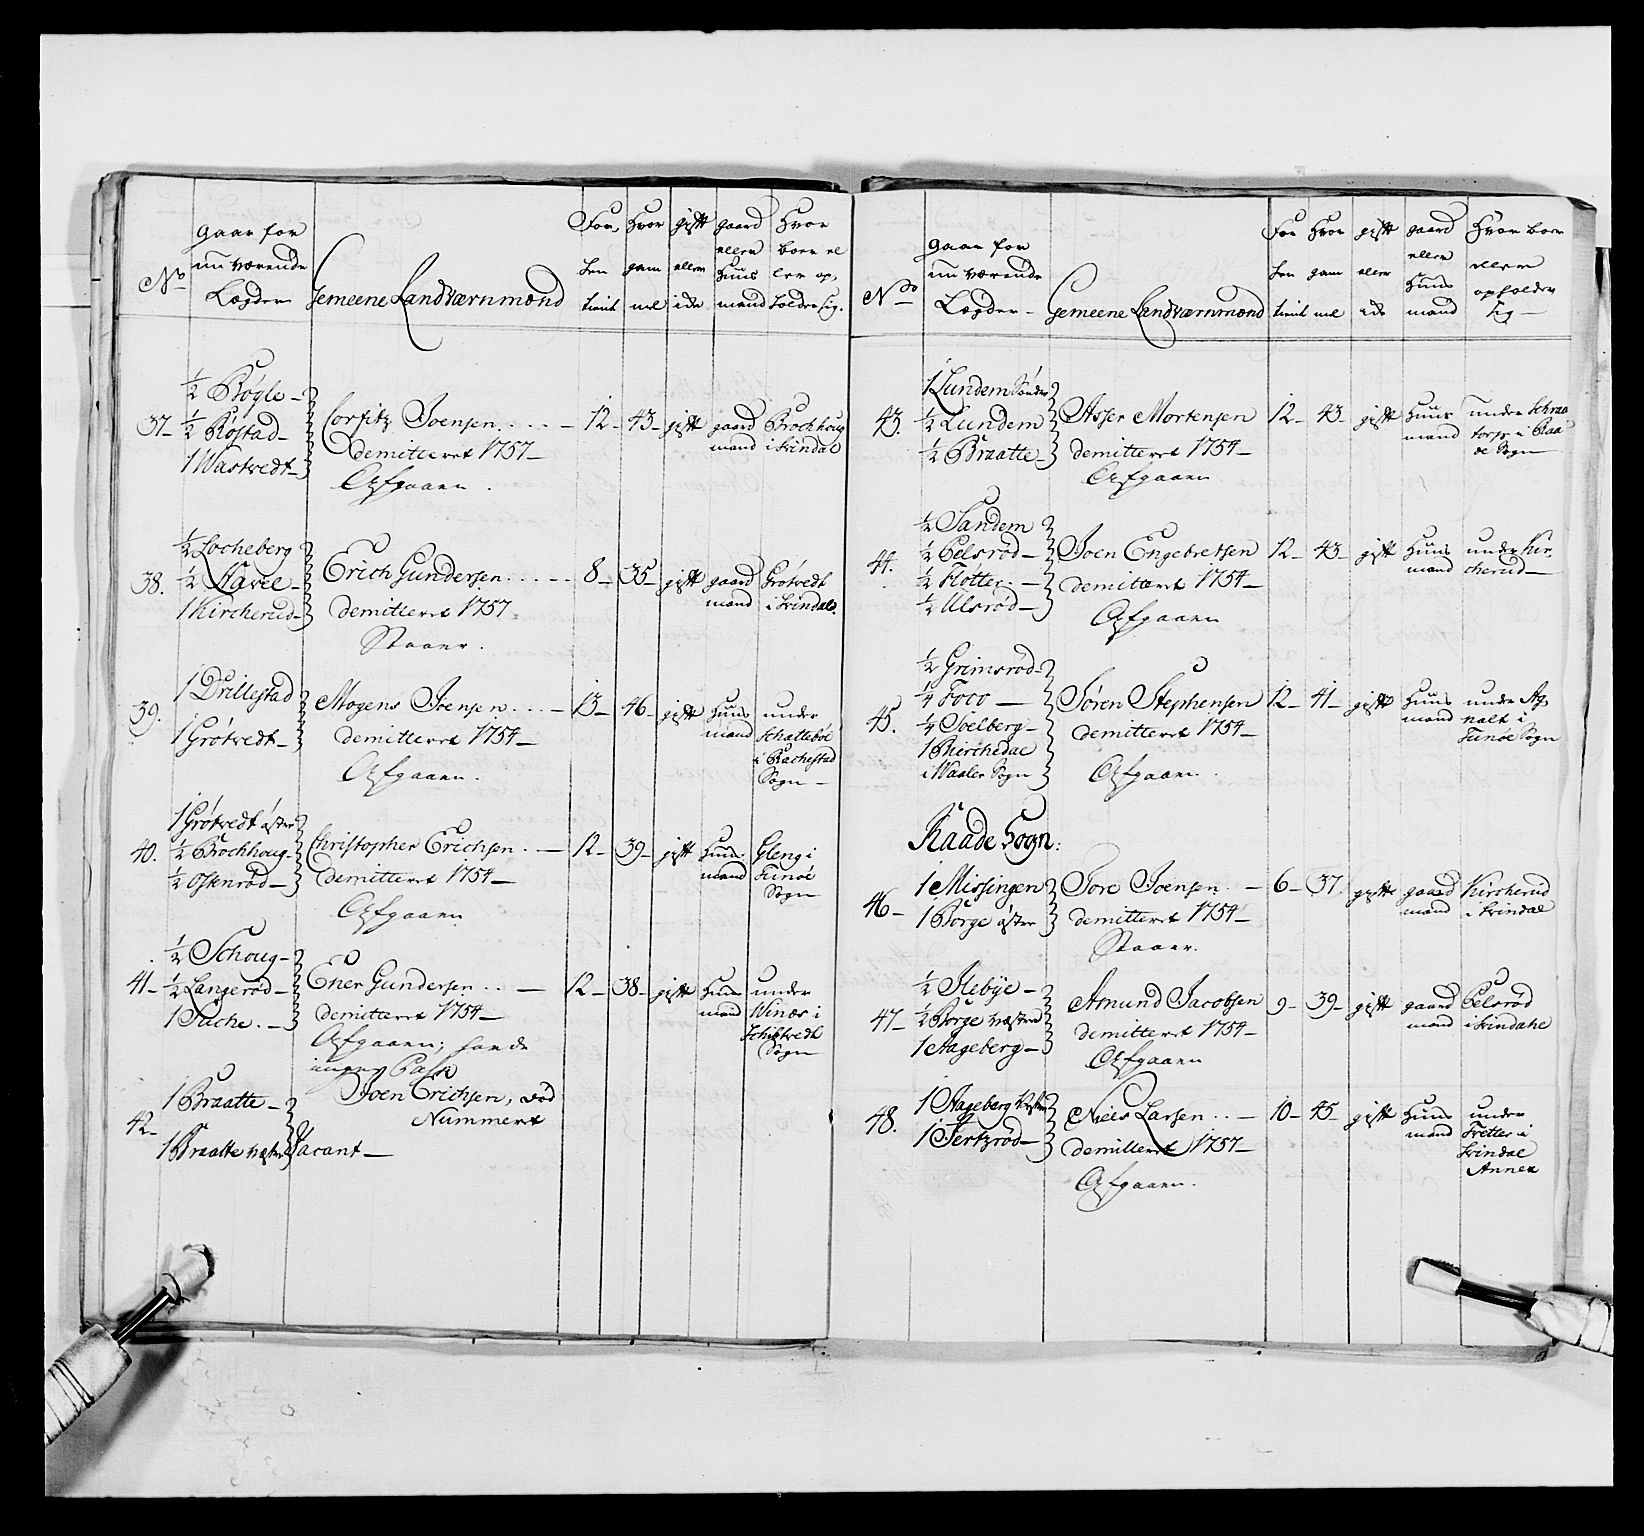 No
gaar for
nu værende
Lægder
Gemeene Landværnmænd
For
hen
tient
Hvor
gam
mel
gift
eller
ide
gaard
eller
Huus
mand
Hvor
boer el
ler op,
holder sig.
37. ½ Bøgle
½ Røstad
1 Wastvedt
Corfitz Joensen
demitteret 1757
Afgaaen.
12 43 gift gaard mand
Brochhoug
i Svindal
38. ½ Locheberg
½ Navee
1 Kircherud
Erich Gundersen
demitteret 1757
Staaer.
8 35 gift gaard mand
Grøtvedt
i Svindal.
39. 1 Drillestad
1 Grøtvedt
Mogens Joensen
demitteret 1754
Afgaaen.
13 46 gift Huus mand
under
Schattebøe
i Rachestad
Sogn
40. 1 Grøtvedt østre
½ Brochhoug
½ Ossenrød
Christopher Erichsen
demitteret 1754
Afgaaen
12 39 gift Huus mand
Gleng i
Tunøe
Sogn
41. ½ Schoug
½ Langerød
1 Tache.
Ener Gundersen
demitteret 1754
Afgaaen; havde
ingen Pass
12 38 gift Huus mand
under
Winæs i
Schibtvedt
Sogn
42. 1 Braatte
1 Braatte Næstre
Joen Erichsen, ved
Nummert
Vacant
No
gaar for
nu værende
Lægder
Gemeene Landværnmænd
For
hen
tient
Hvor
gam
mel
gift
eller
ide
gaard
eller
Huus
mand
Hvor boer
eller
opholder
sig
43. 1 Lundem Søndre
½ Lundem
½ Braatte
Asser Mortensen
demitteret 1754
Afgaaen
12 43 gift Huus mand
under Schraa
torp i Raa
de Sogn
44. ½ Sandem
½ Pelsrød
½ Fløtter
½ Ulsrød
Joen Engebretsen
demitteret 1754
Afgaaen
12 43 gift Huus mand
under Kir,
cherud
45. ½ Grimsrød
¼ Foco
¼ Soelberg
1 Kirchedae
i Waaler Sogn
Søren Stephensen
demitteret 1754
Afgaaen.
12 41 gift Huus mand
under Ag
nalt i
Tunøe Sogn
Raade Sogn:
46. 1 Missingen
1 Borge østre
Tore Joensen
demitteret 1754
Staaer.
6 37. gift gaard mand
Kircherud
i Svindal
47. ½ Ilebye
½ Borge Væstre
1 Aageberg
Asmund Jacobsen
demitteret 1754
Afgaaen
9 39 gift gaard mand
Pelsrød
i Svindahl
48. 1 Aageberg Vestre
1 Tertzrød
Niels Larsen
demitteret 1757
Afgaaen.
10 45 gift Huus mand
under
Tretter i
Svindal
Annex